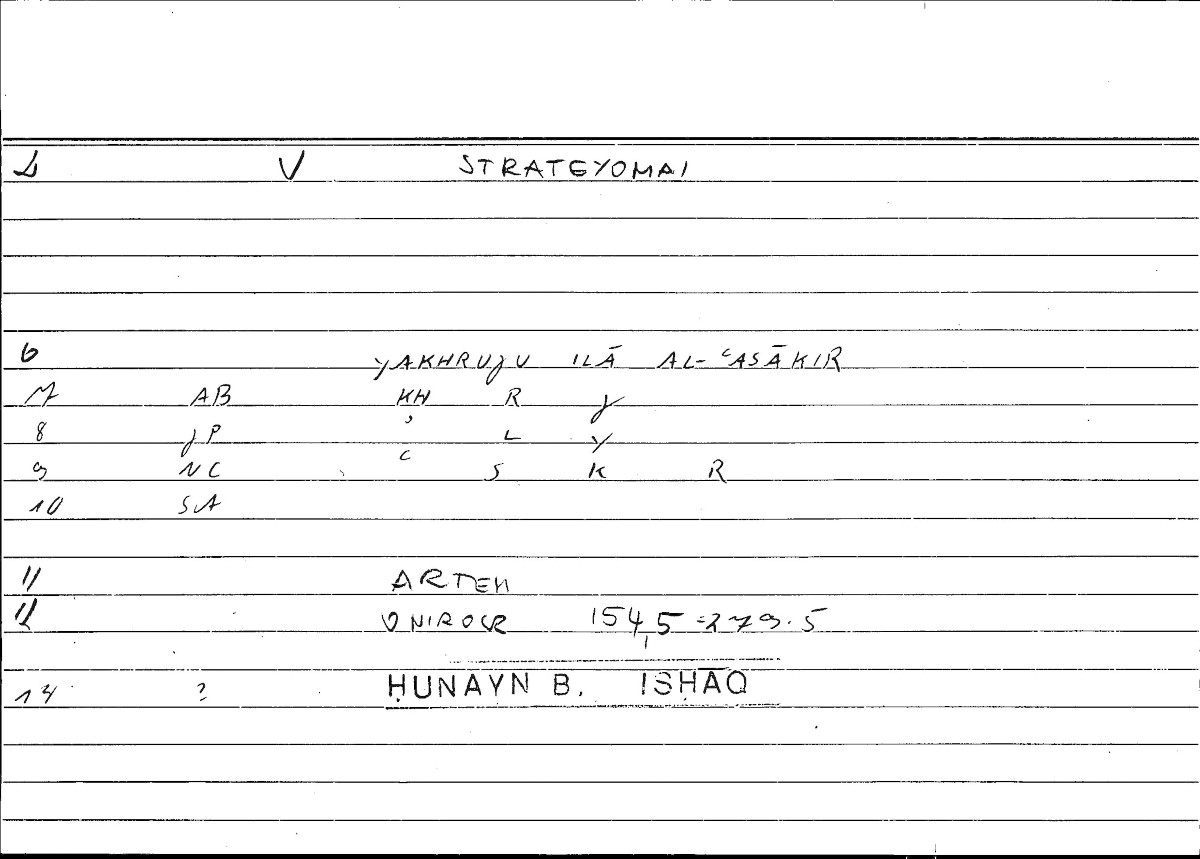 1 V STRATEYOMAI
6 YAKHRUJU ILĀ AL-ʿASĀKIR
7 AB KH R J
8 JP ʾ L Y
9 NC ʿ S K R
10 SA
11 ARTEM
12 ONIROCR 154,5=279.5
14 ? ḤUNAYN B. ISḤĀQ